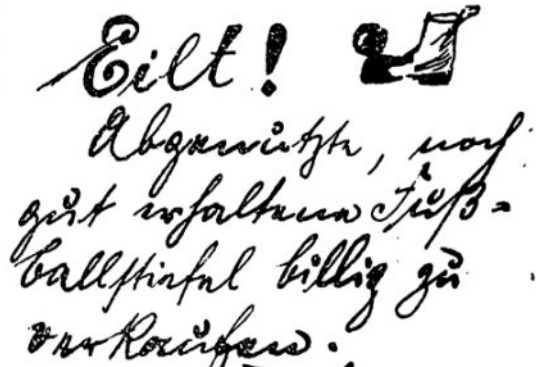 Eilt!
Abgenützte, noch
gut erhaltene Fuß-
ballstiefel billig zu
verkaufen.